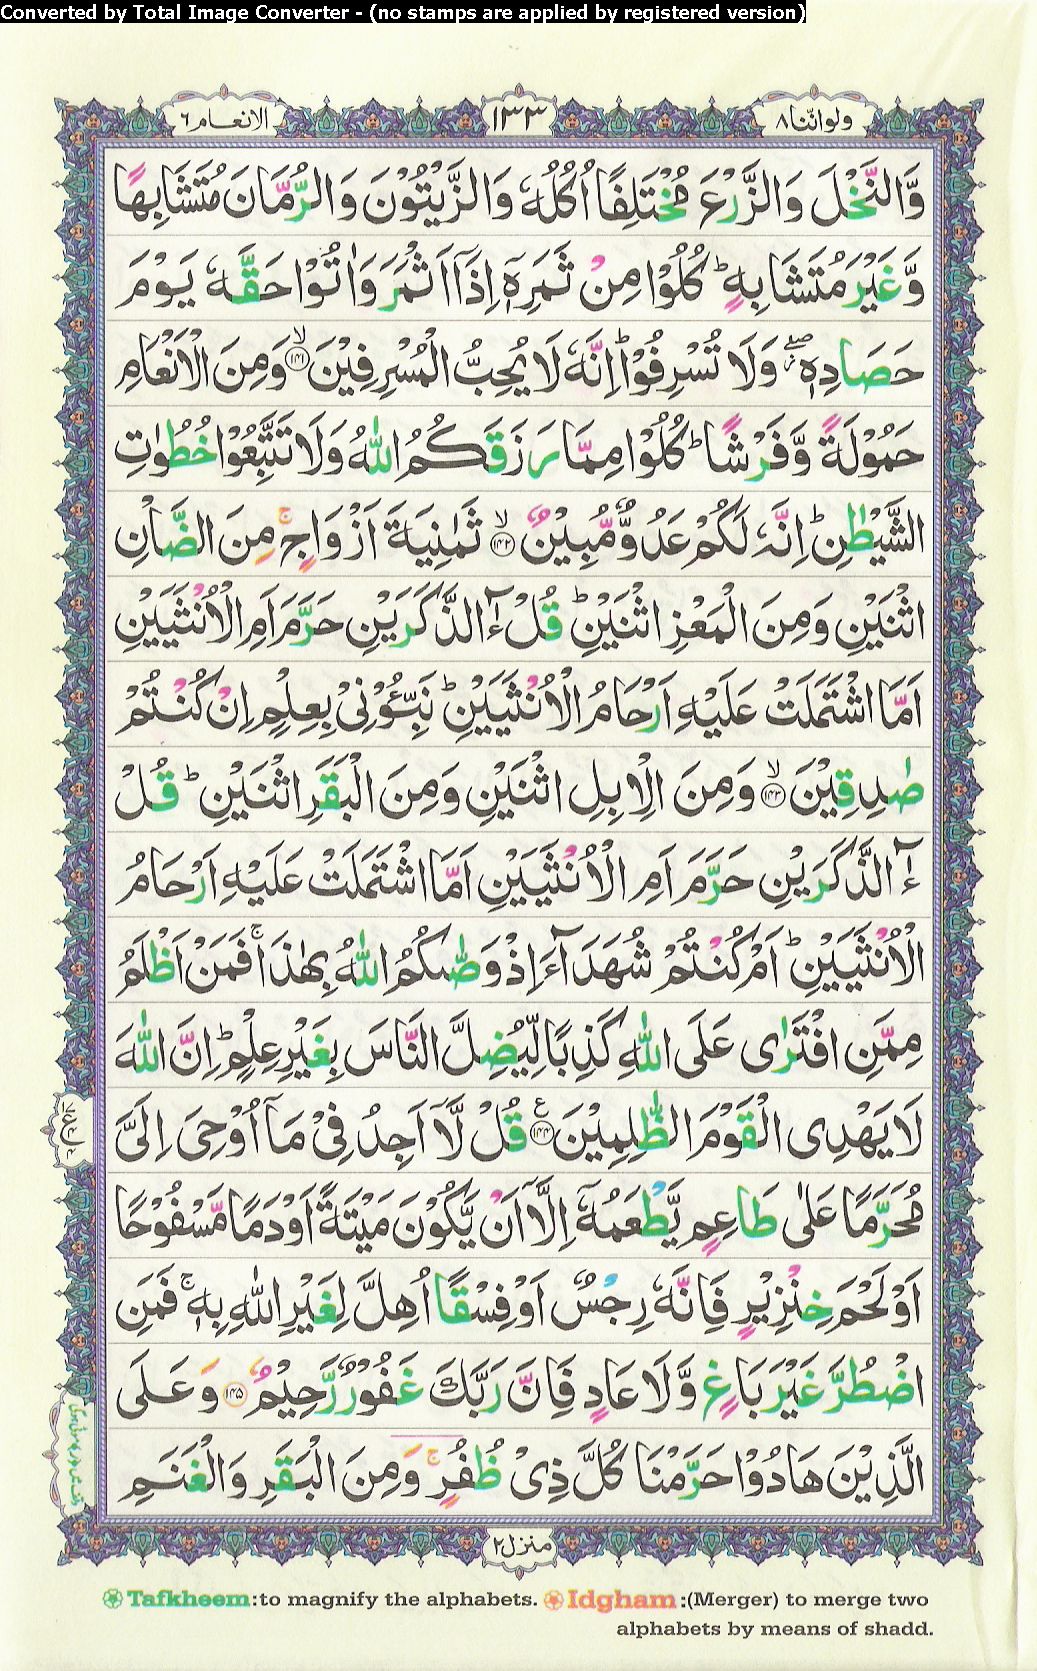 Converted by Total Image Converter - (no stamps are applied by registered version)
ولواننا ٨
١٣٣
الانعام ٦
وَّالنَّخْلَ وَالزَّرْعَ مُخْتَلِفًا اُكُلُهٗ وَالزَّيْتُوْنَ وَالرُّمَّانَ مُتَشَابِهًا
وَّغَيْرَ مُتَشَابِهٍ ؕ كُلُوْا مِنْ ثَمَرِهٖۤ اِذَاۤ اَثْمَرَ وَاٰتُوْا حَقَّهٗ يَوْمَ
حَصَادِهٖ ۖ وَلَا تُسْرِفُوْا ؕ اِنَّهٗ لَا يُحِبُّ الْمُسْرِفِيْنَ ۙ﴿۱۴۱﴾ وَمِنَ الْاَنْعَامِ
حَمُوْلَةً وَّفَرْشًا ؕ كُلُوْا مِمَّا رَزَقَكُمُ اللّٰهُ وَلَا تَتَّبِعُوْا خُطُوٰتِ
الشَّيْطٰنِ ؕ اِنَّهٗ لَكُمْ عَدُوٌّ مُّبِيْنٌ ۙ﴿۱۴۲﴾ ثَمٰنِيَةَ اَزْوَاجٍ ۚ مِنَ الضَّاْنِ
اثْنَيْنِ وَمِنَ الْمَعْزِ اثْنَيْنِ ؕ قُلْ ءٰٓالذَّكَرَيْنِ حَرَّمَ اَمِ الْاُنْثَيَيْنِ
اَمَّا اشْتَمَلَتْ عَلَيْهِ اَرْحَامُ الْاُنْثَيَيْنِ ؕ نَبِّـُٔوْنِىْ بِعِلْمٍ اِنْ كُنْتُمْ
صٰدِقِيْنَ ۙ﴿۱۴۳﴾ وَمِنَ الْاِبِلِ اثْنَيْنِ وَمِنَ الْبَقَرِ اثْنَيْنِ ؕ قُلْ
ءٰٓالذَّكَرَيْنِ حَرَّمَ اَمِ الْاُنْثَيَيْنِ اَمَّا اشْتَمَلَتْ عَلَيْهِ اَرْحَامُ
الْاُنْثَيَيْنِ ؕ اَمْ كُنْتُمْ شُهَدَآءَ اِذْ وَصّٰٮكُمُ اللّٰهُ بِهٰذَا ۚ فَمَنْ اَظْلَمُ
مِمَّنِ افْتَرٰى عَلَى اللّٰهِ كَذِبًا لِّيُضِلَّ النَّاسَ بِغَيْرِ عِلْمٍ ؕ اِنَّ اللّٰهَ
لَا يَهْدِى الْقَوْمَ الظّٰلِمِيْنَ ﴿۱۴۴﴾ؑ قُلْ لَّاۤ اَجِدُ فِىْ مَاۤ اُوْحِىَ اِلَىَّ
مُحَرَّمًا عَلٰى طَاعِمٍ يَّطْعَمُهٗۤ اِلَّاۤ اَنْ يَّكُوْنَ مَيْتَةً اَوْ دَمًا مَّسْفُوْحًا
اَوْ لَحْمَ خِنْزِيْرٍ فَاِنَّهٗ رِجْسٌ اَوْ فِسْقًا اُهِلَّ لِغَيْرِ اللّٰهِ بِهٖ ۚ فَمَنِ
اضْطُرَّ غَيْرَ بَاغٍ وَّلَا عَادٍ فَاِنَّ رَبَّكَ غَفُوْرٌ رَّحِيْمٌ ﴿۱۴۵﴾ وَعَلَى
الَّذِيْنَ هَادُوْا حَرَّمْنَا كُلَّ ذِىْ ظُفُرٍ ۚ وَمِنَ الْبَقَرِ وَالْغَنَمِ
منزل ٢
Tafkheem:to magnify the alphabets. Idgham:(Merger) to merge two
alphabets by means of shadd.